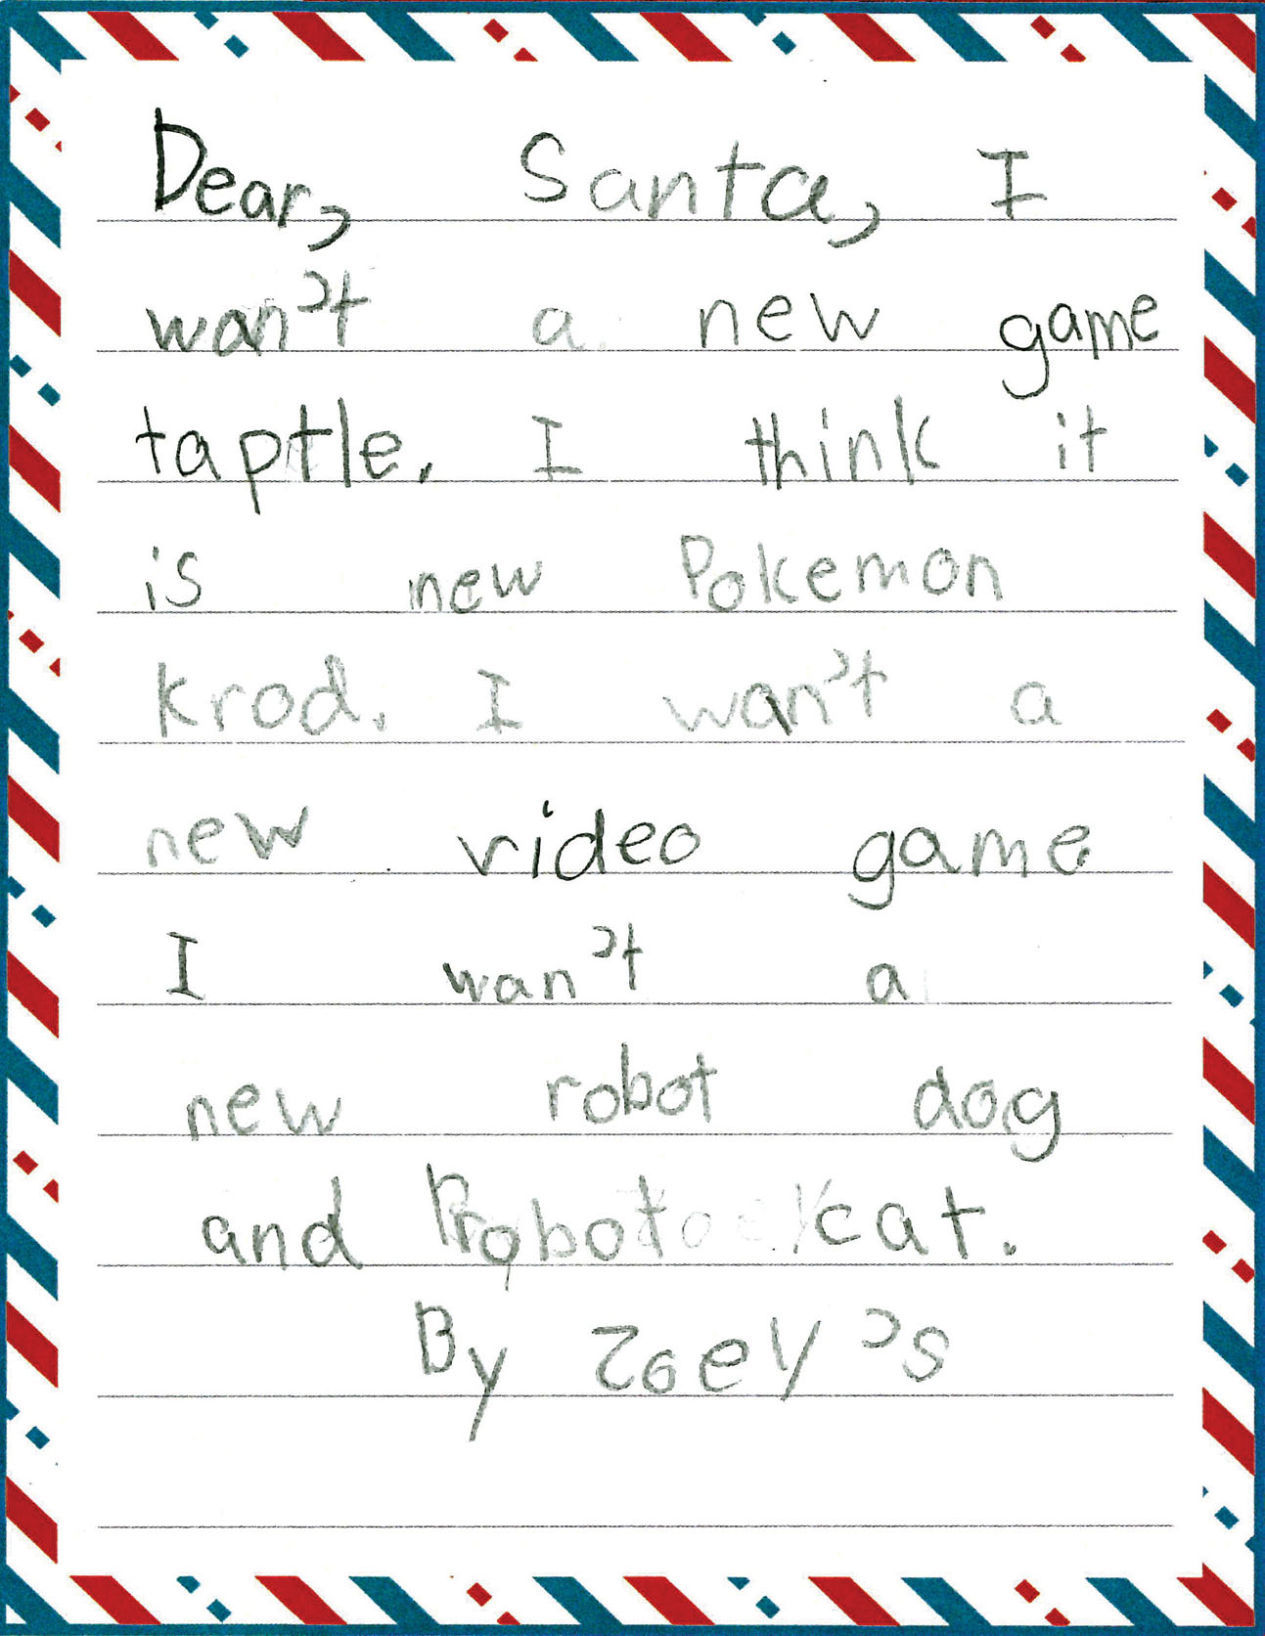 Dear, Santa, I
wan't a new game
taptle. I think it
is new Pokemon
krod. I wan't a
new video game
I wan't a
new robot dog
and Robot cat.
By Zoey's